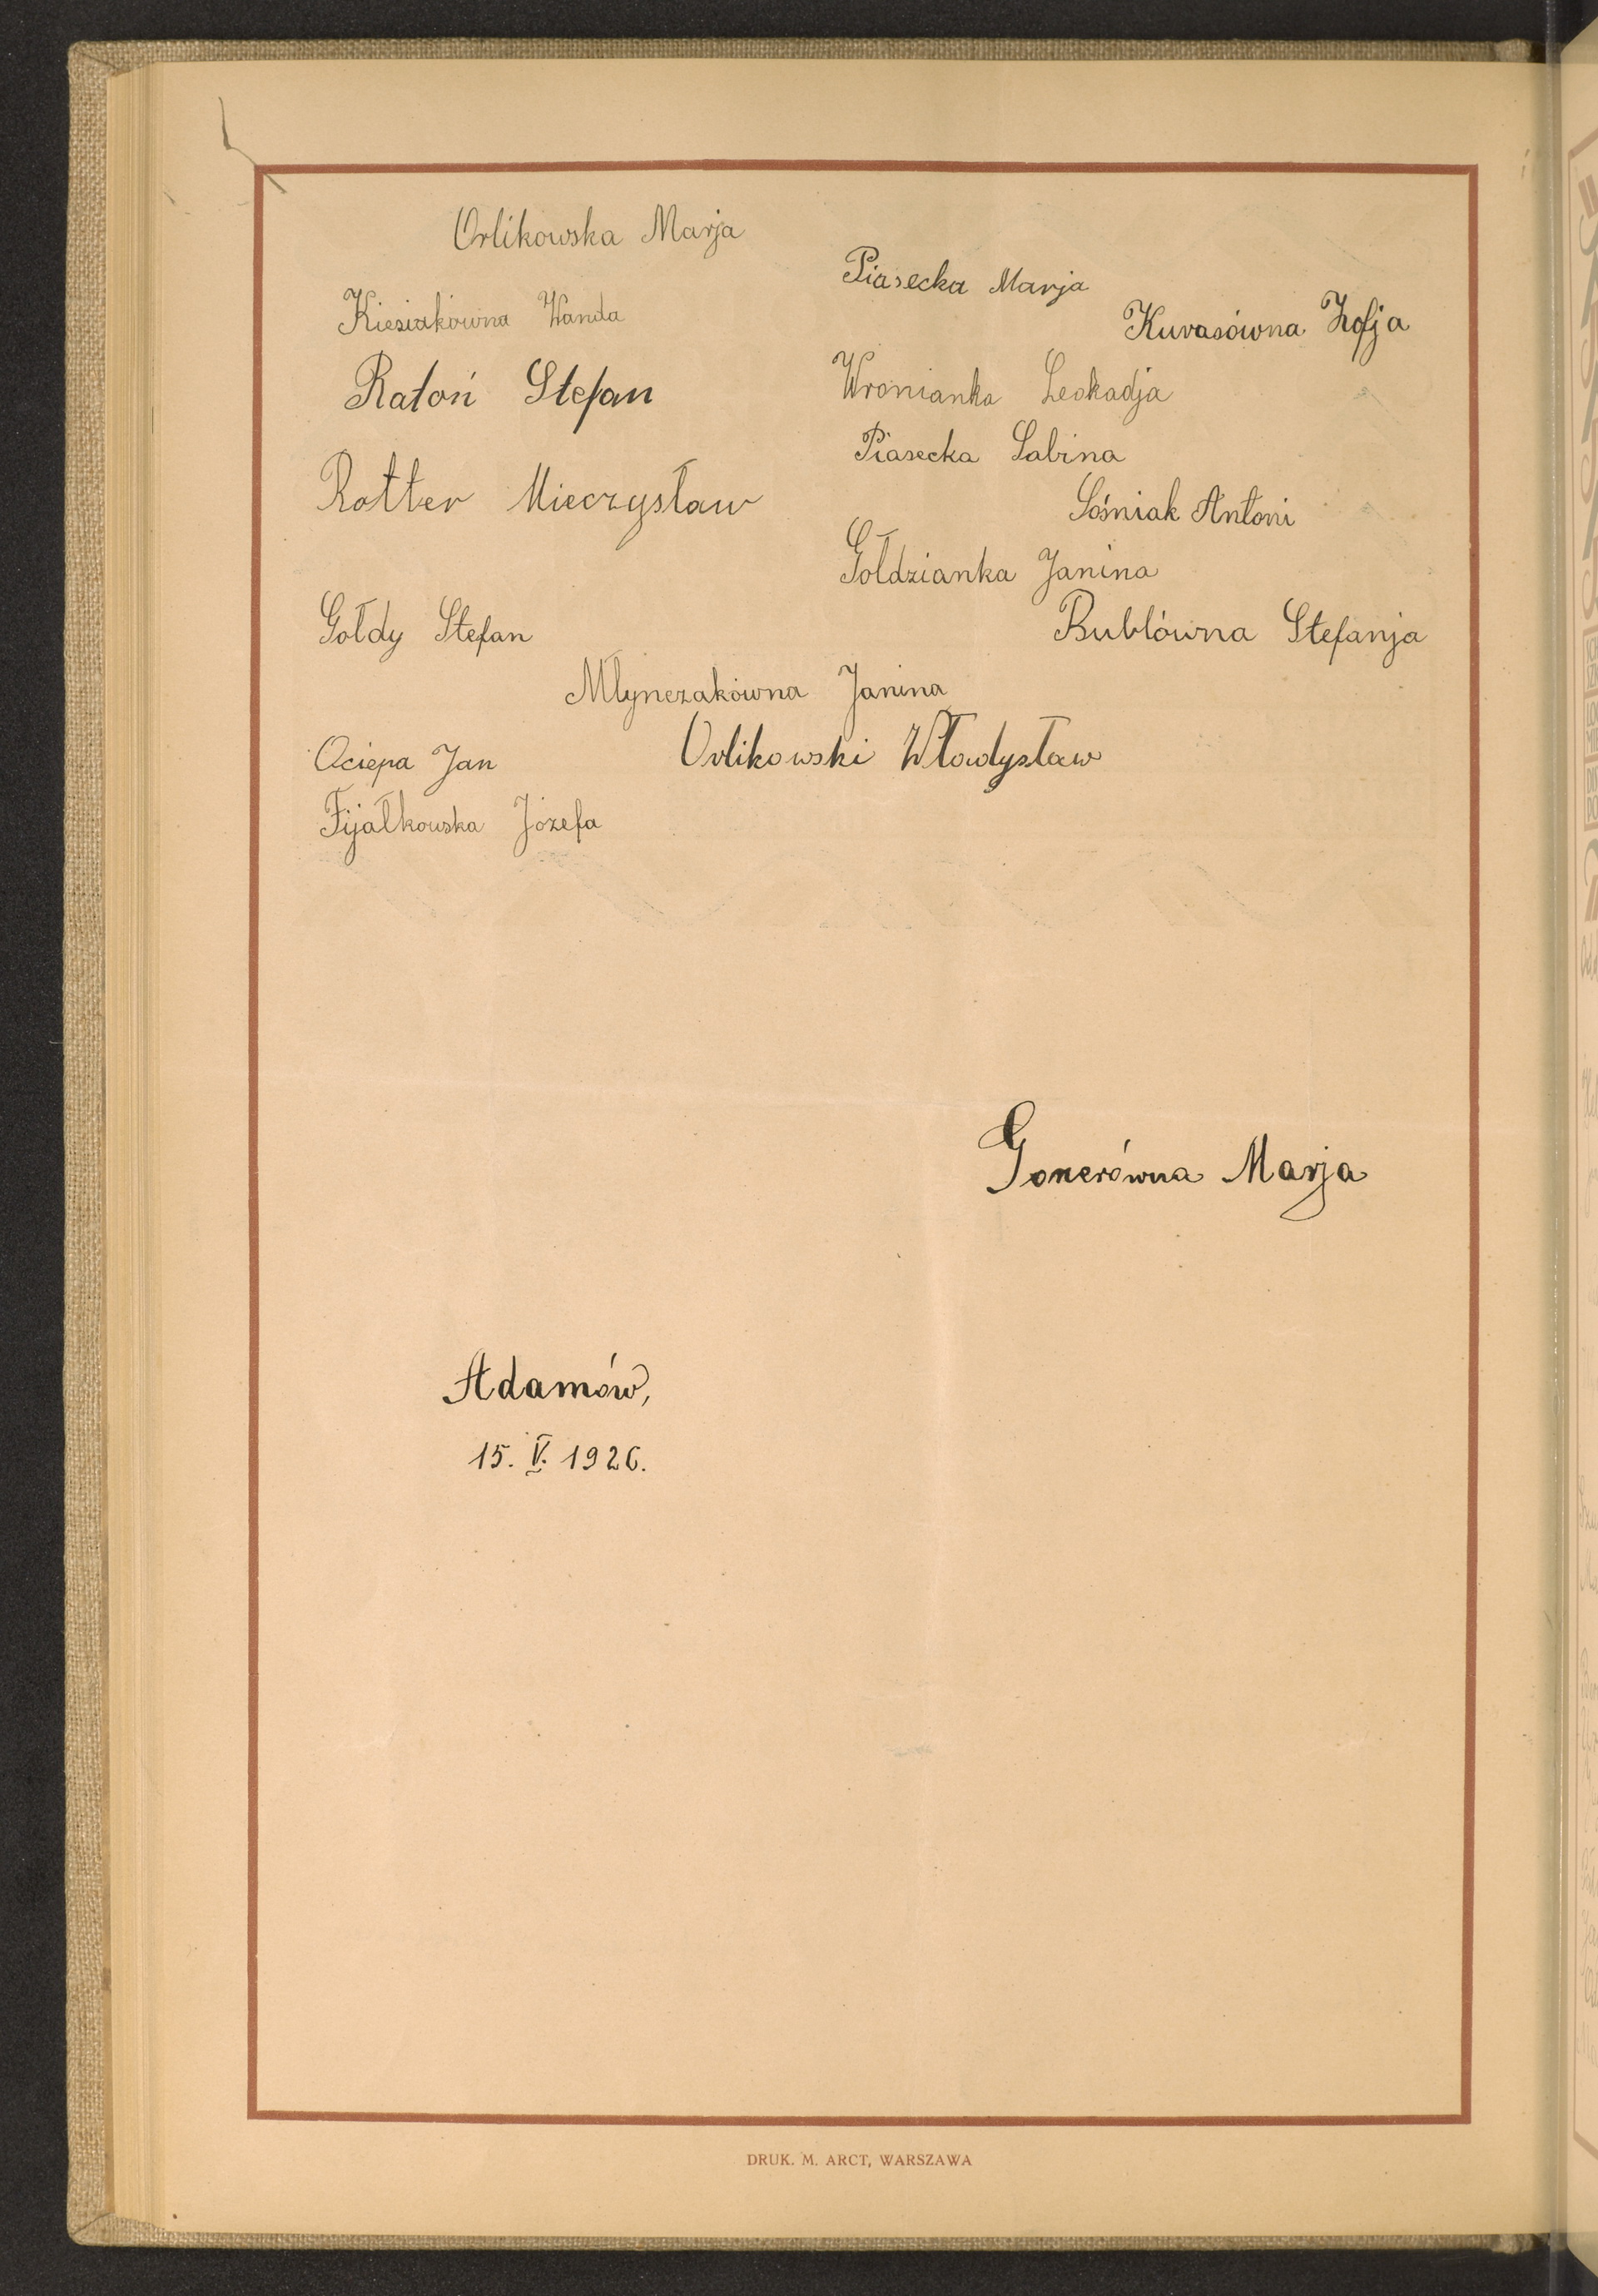 Orlikowska Marja
Piasecka Marja
Kiesiakówna Wanda
Kurasówna Zofja
Ratoń Stefan
Wronianka Leokadja
Piasecka Sabina
Rotter Mieczysław
Sośniak Antoni
Gołdzianka Janina
Gołdy Stefan
Bublówna Stefanja
Młynczakówna Janina
Ociepa Jan
Orlikowski Władysław
Fijałkowska Józefa
Gonerówna Marja
Adamów,
15. V. 1926.
DRUK. M. ARCT, WARSZAWA